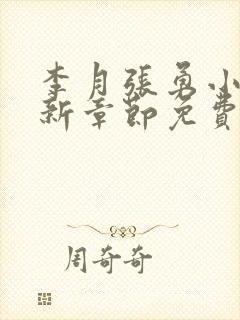 李月張勇小
新章節免費
周奇奇